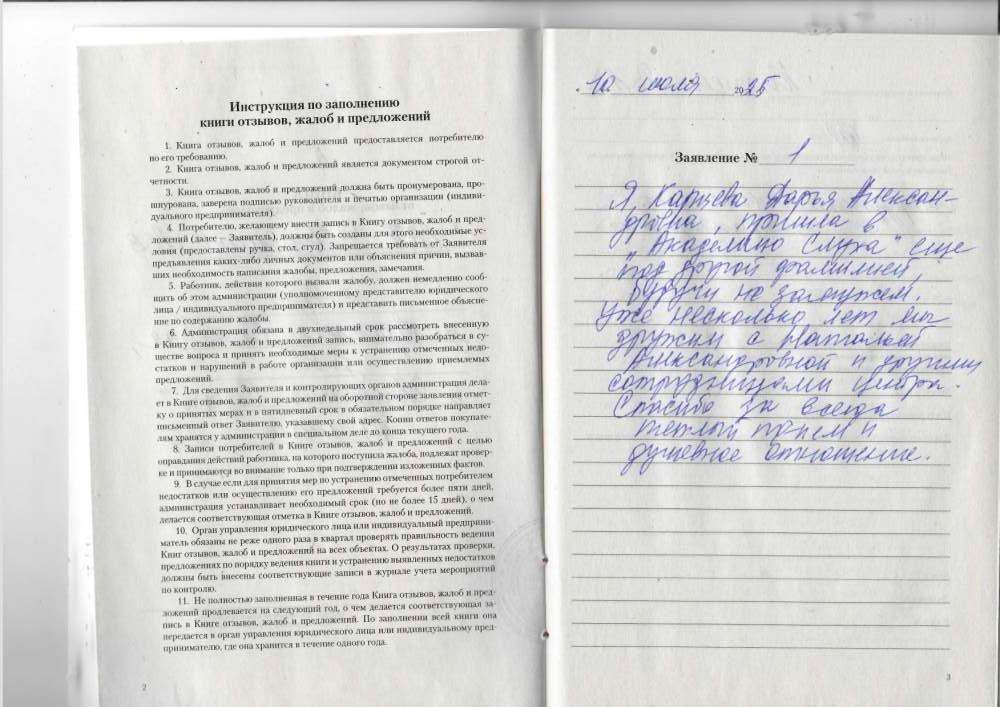 Инструкция по заполнению
книги отзывов, жалоб и предложений
1. Книга отзывов, жалоб и предложений предоставляется потребителю
по его требованию.
2. Книга отзывов, жалоб и предложений является документом строгой от-
четности.
3. Книга отзывов, жалоб и предложений должна быть пронумерована, про-
шнурована, заверена подписью руководителя и печатью организации (индиви-
дуального предпринимателя).
4. Потребителю, желающему внести запись в Книгу отзывов, жалоб и пред-
ложений (далее – Заявитель), должны быть созданы для этого необходимые ус-
ловия (предоставлены ручка, стол, стул). Запрещается требовать от Заявителя
предъявления каких-либо личных документов или объяснения причин, вызвав-
ших необходимость написания жалобы, предложения, замечания.
5. Работник, действия которого вызвали жалобу, должен немедленно сооб-
щить об этом администрации (уполномоченному представителю юридического
лица / индивидуального предпринимателя) и представить письменное объясне-
ние по содержанию жалобы.
6. Администрация обязана в двухнедельный срок рассмотреть внесенную
в Книгу отзывов, жалоб и предложений запись, внимательно разобраться в су-
ществе вопроса и принять необходимые меры к устранению отмеченных недо-
статков и нарушений в работе организации или осуществлению приемлемых
предложений.
7. Для сведения Заявителя и контролирующих органов администрация дела-
ет в Книге отзывов, жалоб и предложений на оборотной стороне заявления отмет-
ку о принятых мерах и в пятидневный срок в обязательном порядке направляет
письменный ответ Заявителю, указавшему свой адрес. Копии ответов покупате-
лям хранятся у администрации в специальном деле до конца текущего года.
8. Записи потребителей в Книге отзывов, жалоб и предложений с целью
оправдания действий работника, на которого поступила жалоба, подлежат провер-
ке и принимаются во внимание только при подтверждении изложенных фактов.
9. В случае если для принятия мер по устранению отмеченных потребителем
недостатков или осуществлению его предложений требуется более пяти дней,
администрация устанавливает необходимый срок (но не более 15 дней), о чем
делается соответствующая отметка в Книге отзывов, жалоб и предложений.
10. Орган управления юридического лица или индивидуальный предприни-
матель обязаны не реже одного раза в квартал проверять правильность ведения
Книг отзывов, жалоб и предложений на всех объектах. О результатах проверки,
предложениях по порядку ведения книги и устранению выявленных недостатков
должны быть внесены соответствующие записи в журнале учета мероприятий
по контролю.
11. Не полностью заполненная в течение года Книга отзывов, жалоб и пред-
ложений продлевается на следующий год, о чем делается соответствующая за-
пись в Книге отзывов, жалоб и предложений. По заполнении всей книги она
передается в орган управления юридического лица или индивидуальному пред-
принимателю, где она хранится в течение одного года.
2
10 июля 2025
Заявление № 1
Я, Карцева Дарья Алексан-
дровна, пришла в
"Академию Слуха" еще
под другой фамилией,
будучи не замужем.
Уже несколько лет мы
дружим с Натальей
Александровной и другими
сотрудницами центра.
Спасибо за всегда
теплый прием и
душевное отношение.
3